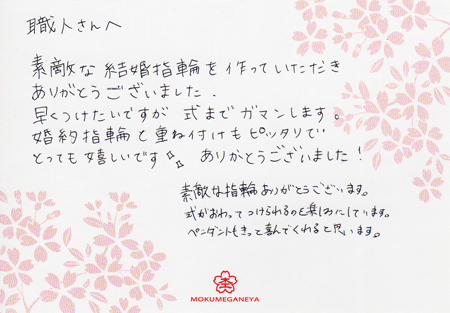 職人さんへ
素敵な結婚指輪を作っていただき
ありがとうございました.
早くつけたいですが 式までガマンします。
婚約指輪と重ね付けもピッタリで
とっても嬉しいです ありがとうございました!
素敵な指輪ありがとうございます。
式がおわってつけられるのを楽しみにしています。
ペンダントもきっと喜んでくれると思います。
MOKUMEGANEYA